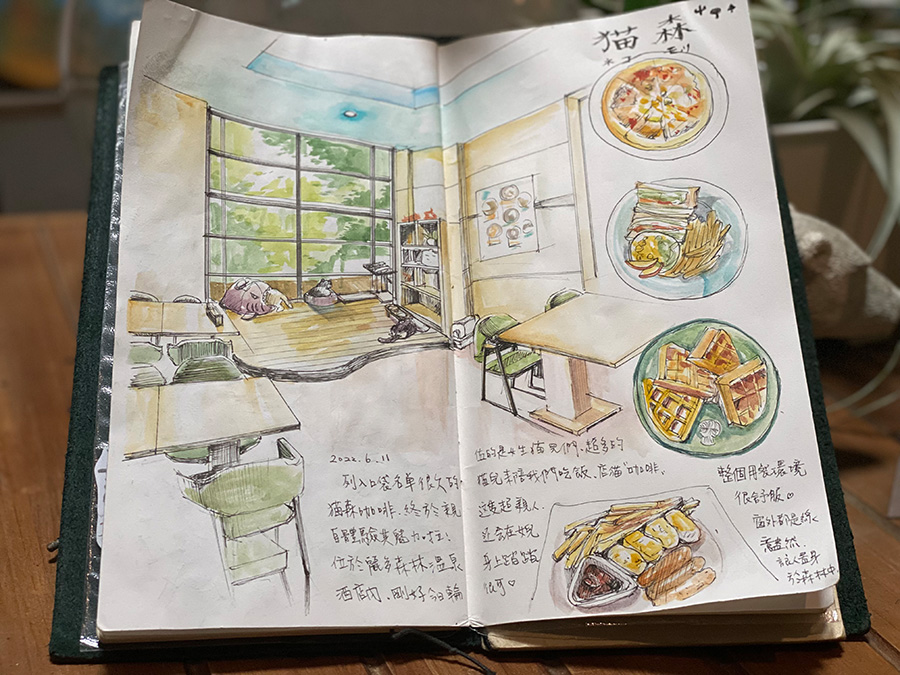 猫森
ネコ モリ
2022.6.11
列入口袋名單很久的
猫森咖啡,終於親
自體驗其魅力啦!
位於麗多森林溫泉
酒店內,剛好今日輪
位的是女生猫兒們,超多的
猫兒 陪我們吃飯,店猫"咖啡"
這隻超親人
還會在
身上踏踏
很可♡
整個用餐環境
很舒服
窗外都是綠
意盎然,
讓人置身
於森林中